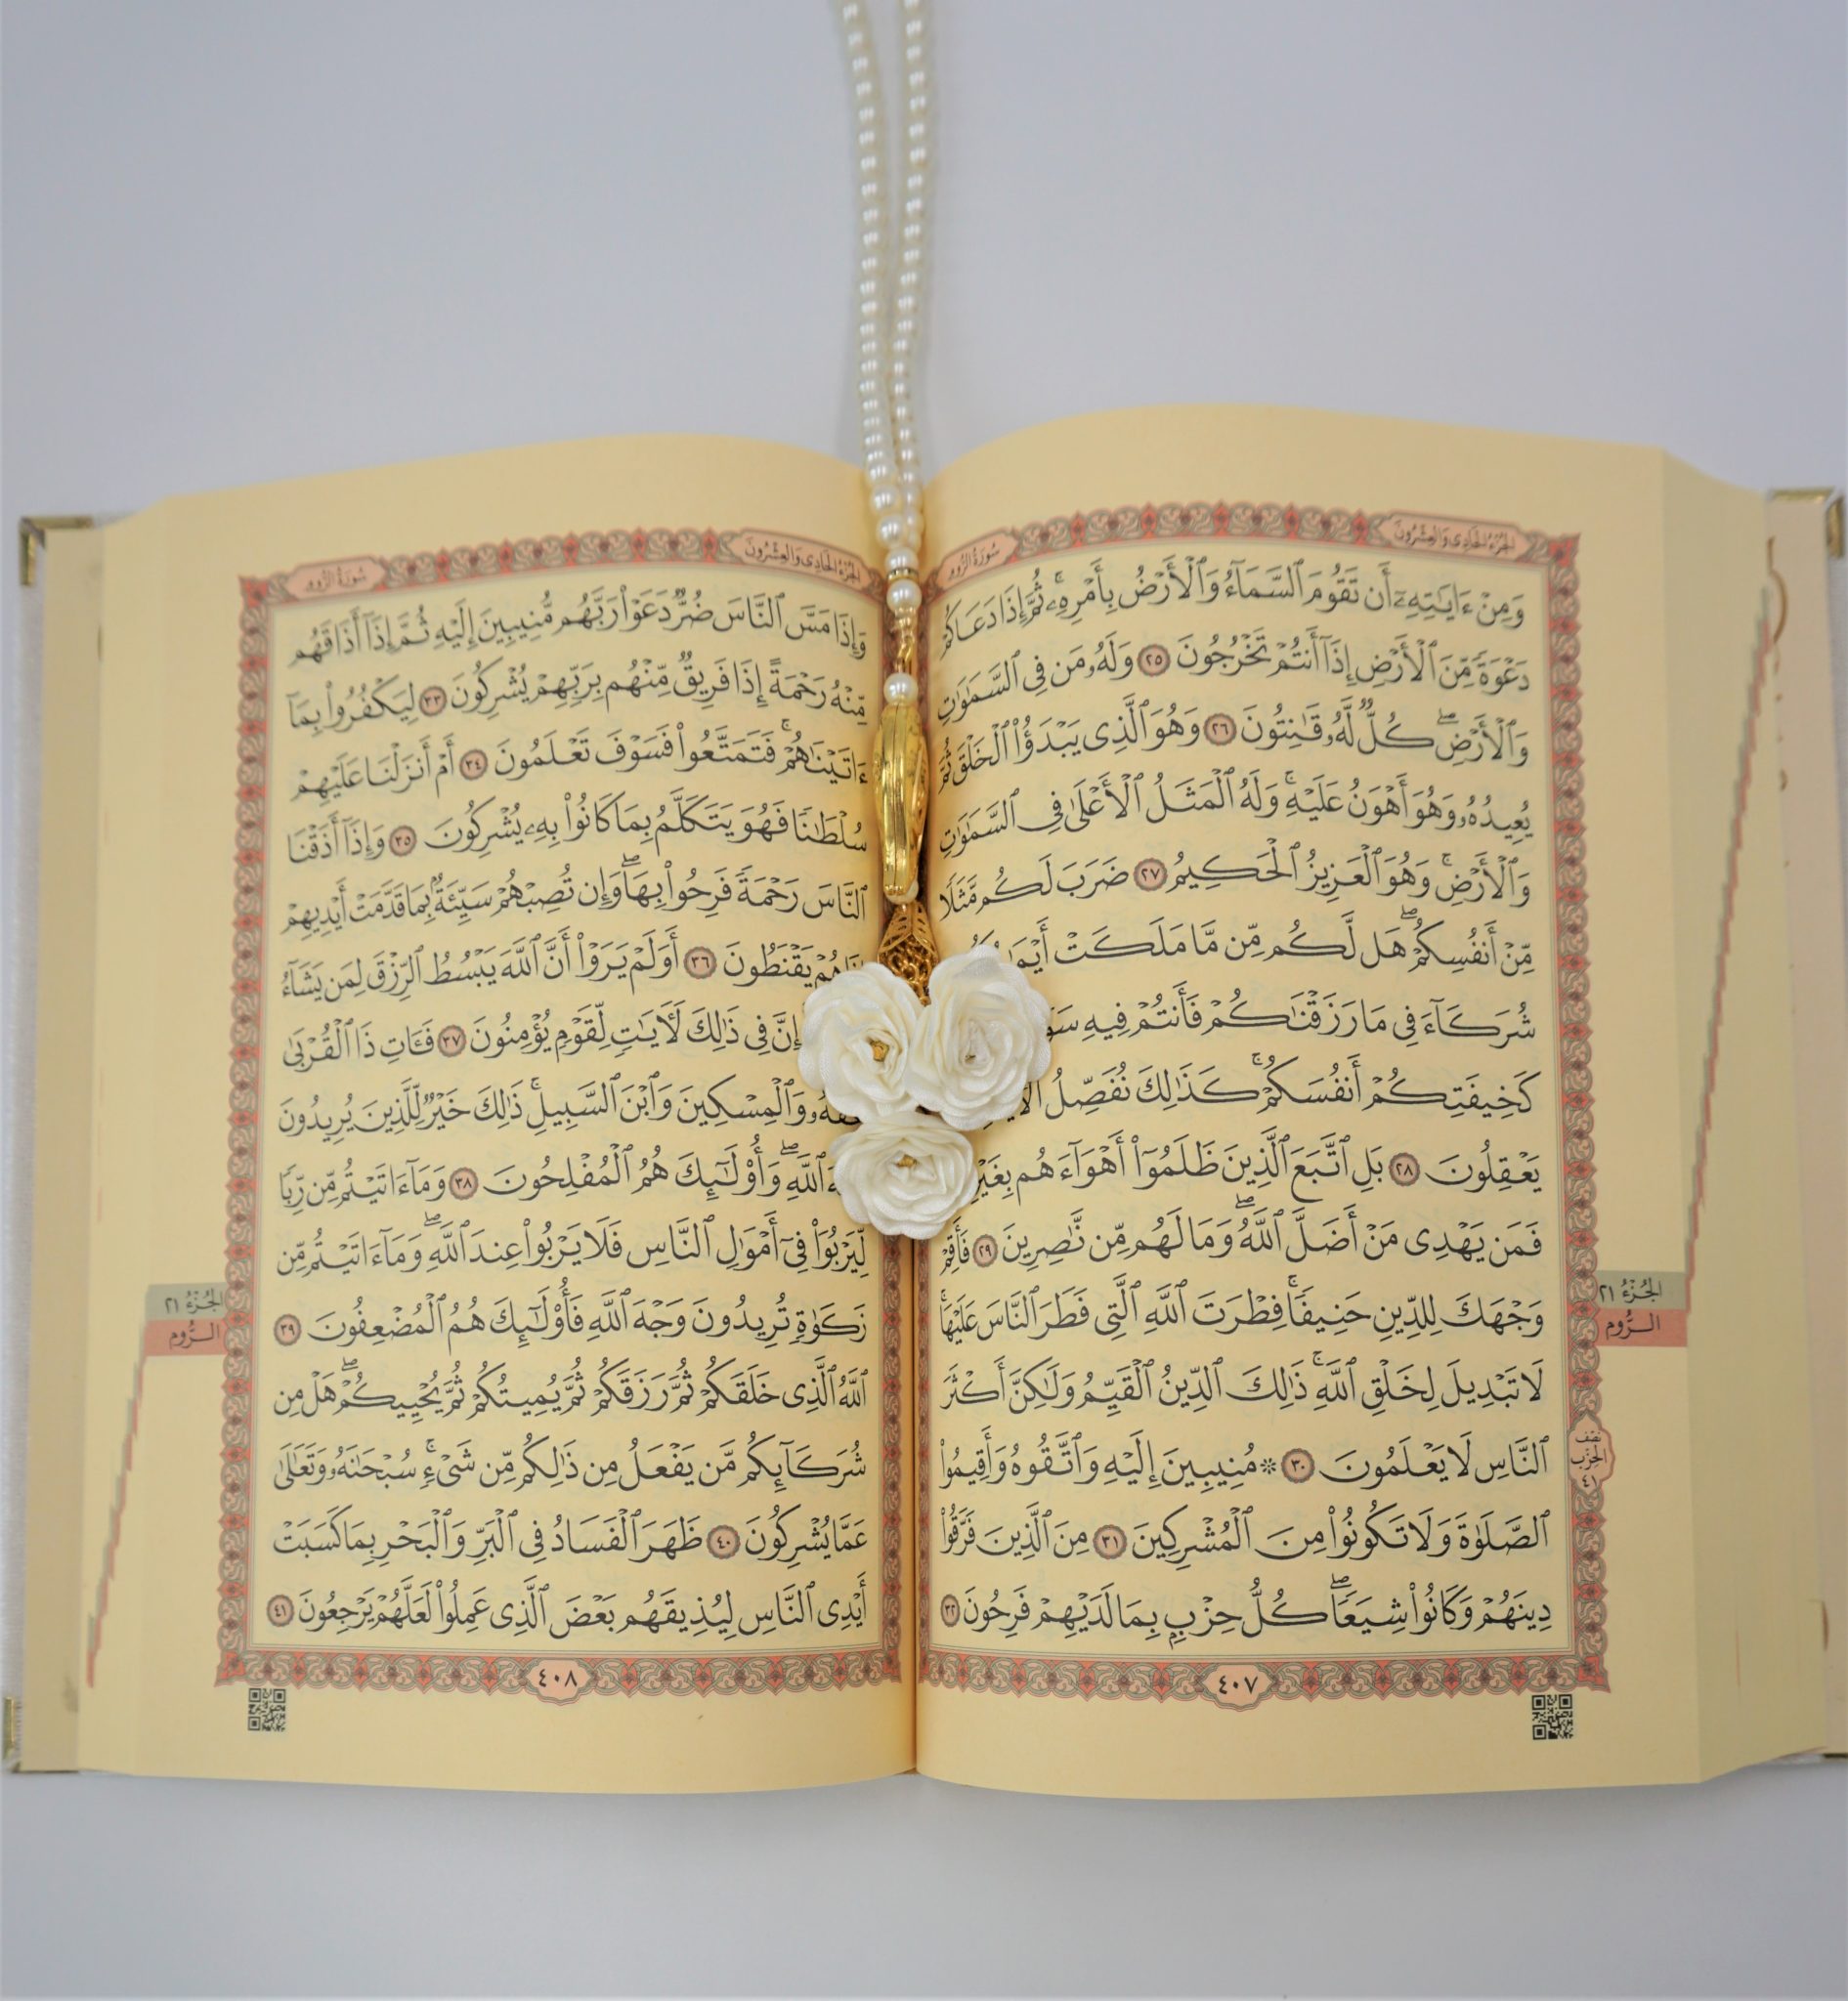 الجُزْءُ الحَادِى وَالعِشْرُونَ
سُورَةُ الرُّومِ
وَمِنْ ءَايَٰتِهِۦٓ أَن تَقُومَ ٱلسَّمَآءُ وَٱلْأَرْضُ بِأَمْرِهِۦۚ ثُمَّ إِذَا دَعَاكُمْ
دَعْوَةً مِّنَ ٱلْأَرْضِ إِذَآ أَنتُمْ تَخْرُجُونَ ٢٥ وَلَهُۥ مَن فِى ٱلسَّمَٰوَٰتِ
وَٱلْأَرْضِۖ كُلٌّ لَّهُۥ قَٰنِتُونَ ٢٦ وَهُوَ ٱلَّذِى يَبْدَؤُا۟ ٱلْخَلْقَ ثُمَّ
يُعِيدُهُۥ وَهُوَ أَهْوَنُ عَلَيْهِۚ وَلَهُ ٱلْمَثَلُ ٱلْأَعْلَىٰ فِى ٱلسَّمَٰوَٰتِ
وَٱلْأَرْضِۚ وَهُوَ ٱلْعَزِيزُ ٱلْحَكِيمُ ٢٧ ضَرَبَ لَكُم مَّثَلًا
مِّنْ أَنفُسِكُمْۖ هَل لَّكُم مِّن مَّا مَلَكَتْ
شُرَكَآءَ فِى مَا رَزَقْنَٰكُمْ فَأَنتُمْ فِيهِ
كَخِيفَتِكُمْ أَنفُسَكُمْۚ كَذَٰلِكَ نُفَصِّلُ
يَعْقِلُونَ ٢٨ بَلِ ٱتَّبَعَ ٱلَّذِينَ ظَلَمُوٓا۟ أَهْوَآءَهُم بِغَيْرِ
فَمَن يَهْدِى مَنْ أَضَلَّ ٱللَّهُۖ وَمَا لَهُم مِّن نَّٰصِرِينَ ٢٩ فَأَقِمْ
وَجْهَكَ لِلدِّينِ حَنِيفًاۚ فِطْرَتَ ٱللَّهِ ٱلَّتِى فَطَرَ ٱلنَّاسَ عَلَيْهَاۚ
لَا تَبْدِيلَ لِخَلْقِ ٱللَّهِۚ ذَٰلِكَ ٱلدِّينُ ٱلْقَيِّمُ وَلَٰكِنَّ أَكْثَرَ
ٱلنَّاسِ لَا يَعْلَمُونَ ٣٠ ۞ مُنِيبِينَ إِلَيْهِ وَٱتَّقُوهُ وَأَقِيمُوا۟
ٱلصَّلَوٰةَ وَلَا تَكُونُوا۟ مِنَ ٱلْمُشْرِكِينَ ٣١ مِنَ ٱلَّذِينَ فَرَّقُوا۟
دِينَهُمْ وَكَانُوا۟ شِيَعًاۖ كُلُّ حِزْبٍۭ بِمَا لَدَيْهِمْ فَرِحُونَ ٣٢
٤٠٧
الجُزْءُ ٢١
الرُّوم
نصف
الحزب
٤١
الجُزْءُ الحَادِى وَالعِشْرُونَ
سُورَةُ الرُّومِ
وَإِذَا مَسَّ ٱلنَّاسَ ضُرٌّ دَعَوْا۟ رَبَّهُم مُّنِيبِينَ إِلَيْهِ ثُمَّ إِذَآ أَذَاقَهُم
مِّنْهُ رَحْمَةً إِذَا فَرِيقٌ مِّنْهُم بِرَبِّهِمْ يُشْرِكُونَ ٣٣ لِيَكْفُرُوا۟ بِمَآ
ءَاتَيْنَٰهُمْۚ فَتَمَتَّعُوا۟ فَسَوْفَ تَعْلَمُونَ ٣٤ أَمْ أَنزَلْنَا عَلَيْهِمْ
سُلْطَٰنًا فَهُوَ يَتَكَلَّمُ بِمَا كَانُوا۟ بِهِۦ يُشْرِكُونَ ٣٥ وَإِذَآ أَذَقْنَا
ٱلنَّاسَ رَحْمَةً فَرِحُوا۟ بِهَاۖ وَإِن تُصِبْهُمْ سَيِّئَةٌۢ بِمَا قَدَّمَتْ أَيْدِيهِمْ
إِذَا هُمْ يَقْنَطُونَ ٣٦ أَوَلَمْ يَرَوْا۟ أَنَّ ٱللَّهَ يَبْسُطُ ٱلرِّزْقَ لِمَن يَشَآءُ
إِنَّ فِى ذَٰلِكَ لَءَايَٰتٍ لِّقَوْمٍ يُؤْمِنُونَ ٣٧ فَـَٔاتِ ذَا ٱلْقُرْبَىٰ
وَٱلْمِسْكِينَ وَٱبْنَ ٱلسَّبِيلِۚ ذَٰلِكَ خَيْرٌ لِّلَّذِينَ يُرِيدُونَ
ٱللَّهِۖ وَأُو۟لَٰٓئِكَ هُمُ ٱلْمُفْلِحُونَ ٣٨ وَمَآ ءَاتَيْتُم مِّن رِّبًا
لِّيَرْبُوَا۟ فِىٓ أَمْوَٰلِ ٱلنَّاسِ فَلَا يَرْبُوا۟ عِندَ ٱللَّهِۖ وَمَآ ءَاتَيْتُم مِّن
زَكَوٰةٍ تُرِيدُونَ وَجْهَ ٱللَّهِ فَأُو۟لَٰٓئِكَ هُمُ ٱلْمُضْعِفُونَ ٣٩
ٱللَّهُ ٱلَّذِى خَلَقَكُمْ ثُمَّ رَزَقَكُمْ ثُمَّ يُمِيتُكُمْ ثُمَّ يُحْيِيكُمْۖ هَلْ مِن
شُرَكَآئِكُم مَّن يَفْعَلُ مِن ذَٰلِكُم مِّن شَىْءٍۚ سُبْحَٰنَهُۥ وَتَعَٰلَىٰ
عَمَّا يُشْرِكُونَ ٤٠ ظَهَرَ ٱلْفَسَادُ فِى ٱلْبَرِّ وَٱلْبَحْرِ بِمَا كَسَبَتْ
أَيْدِى ٱلنَّاسِ لِيُذِيقَهُم بَعْضَ ٱلَّذِى عَمِلُوا۟ لَعَلَّهُمْ يَرْجِعُونَ ٤١
٤٠٨
الجُزْءُ ٢١
الرُّوم